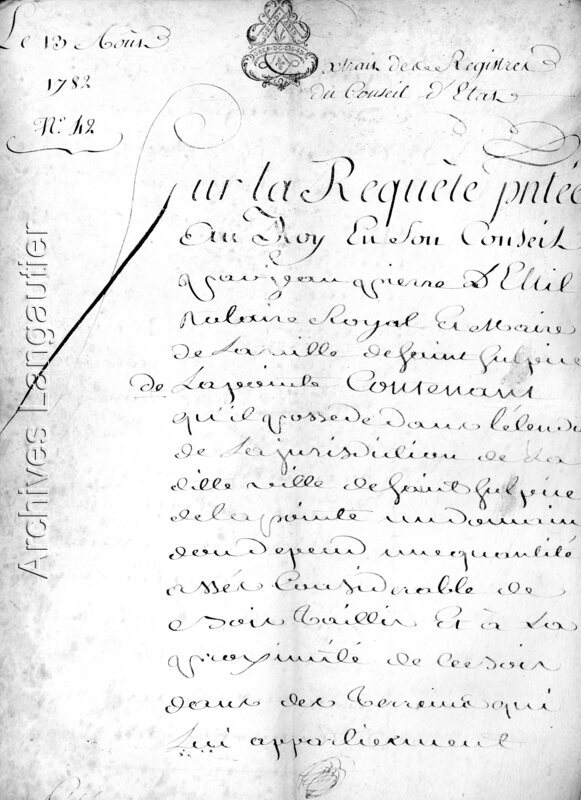 Le 13 Août
1782
N.º 42
Extrait des Registres
du Conseil d'Etat
Sur la Requête pntée
Au Roy En son Conseil
par jean pierre
notaire Royal Et Maire
de La ville de saint Sulpice
de Lapointe Contenant
qu'il possede dans l'étendue
de La jurisdiction de La
ditte ville de saint Sulpice
de la pointe un domaine
dont depend une quantité
assés Considerable de
bois taillis Et à La
proximité de ce bois
dans des terreins qui
Lui appartiennent
Archives Langautier